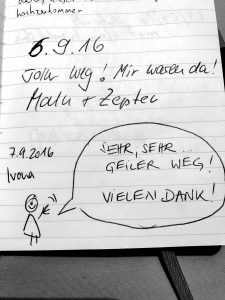 hochzukommen
6.9.16
Toller Weg! Wir waren da!
Malu + Zepter
7.9.2016
Ivona
SEHR, SEHR...
GEILER WEG!
VIELEN DANK!